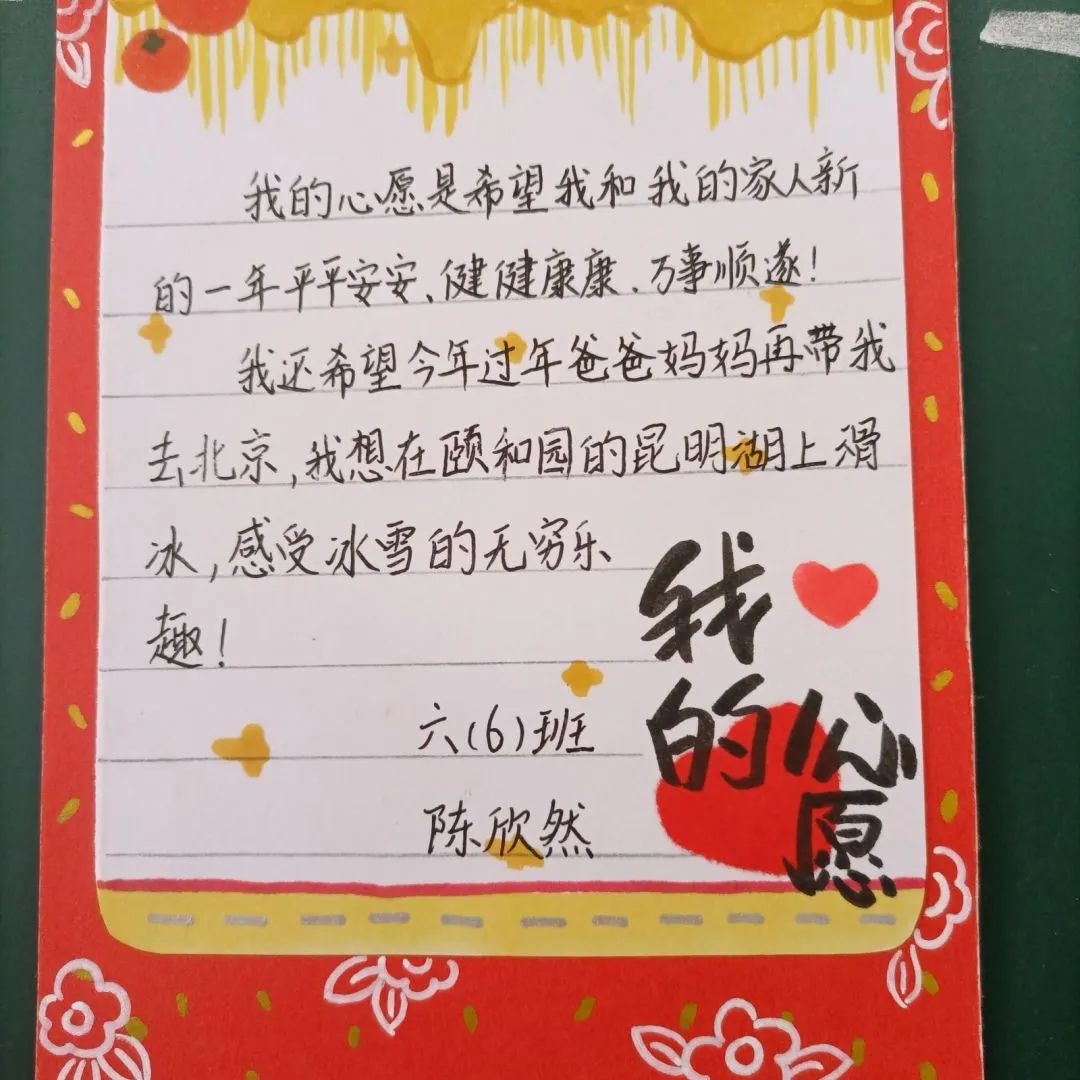 我的心愿是希望我和我的家人新
的一年平平安安、健健康康、万事顺遂!
我还希望今年过年爸爸妈妈再带我
去北京,我想在颐和园的昆明湖上滑
冰,感受冰雪的无穷乐
趣!
六(6)班
陈欣然
我
的心
愿